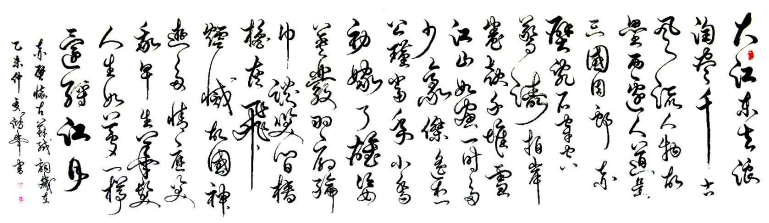 大江东去浪
淘尽千古
风流人物故
垒西边人道是
三國周郎赤
壁乱石穿空
惊涛拍岸
卷起千堆雪
江山如画一时多
少豪傑遥想
公瑾当年小乔
初嫁了雄姿
英發羽扇綸
巾談笑间樯
橹灰飛
煙滅故國神
遊多情应笑
我早生华髮
人生如梦一樽
還酹江月
赤壁怀古蘇軾詞
乙未仲夏书